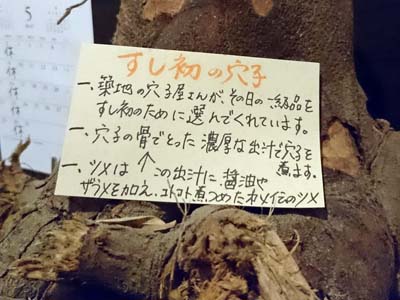 5
すし初の穴子
一、築地の穴子屋さんが、その日の一級品を
すし初のために選んでくれています。
一、穴子の骨でとった濃厚な出汁で穴子を
煮ます。
一、ツメは↑この出汁に、醤油や
ザラメを加え、コトコト煮つめた